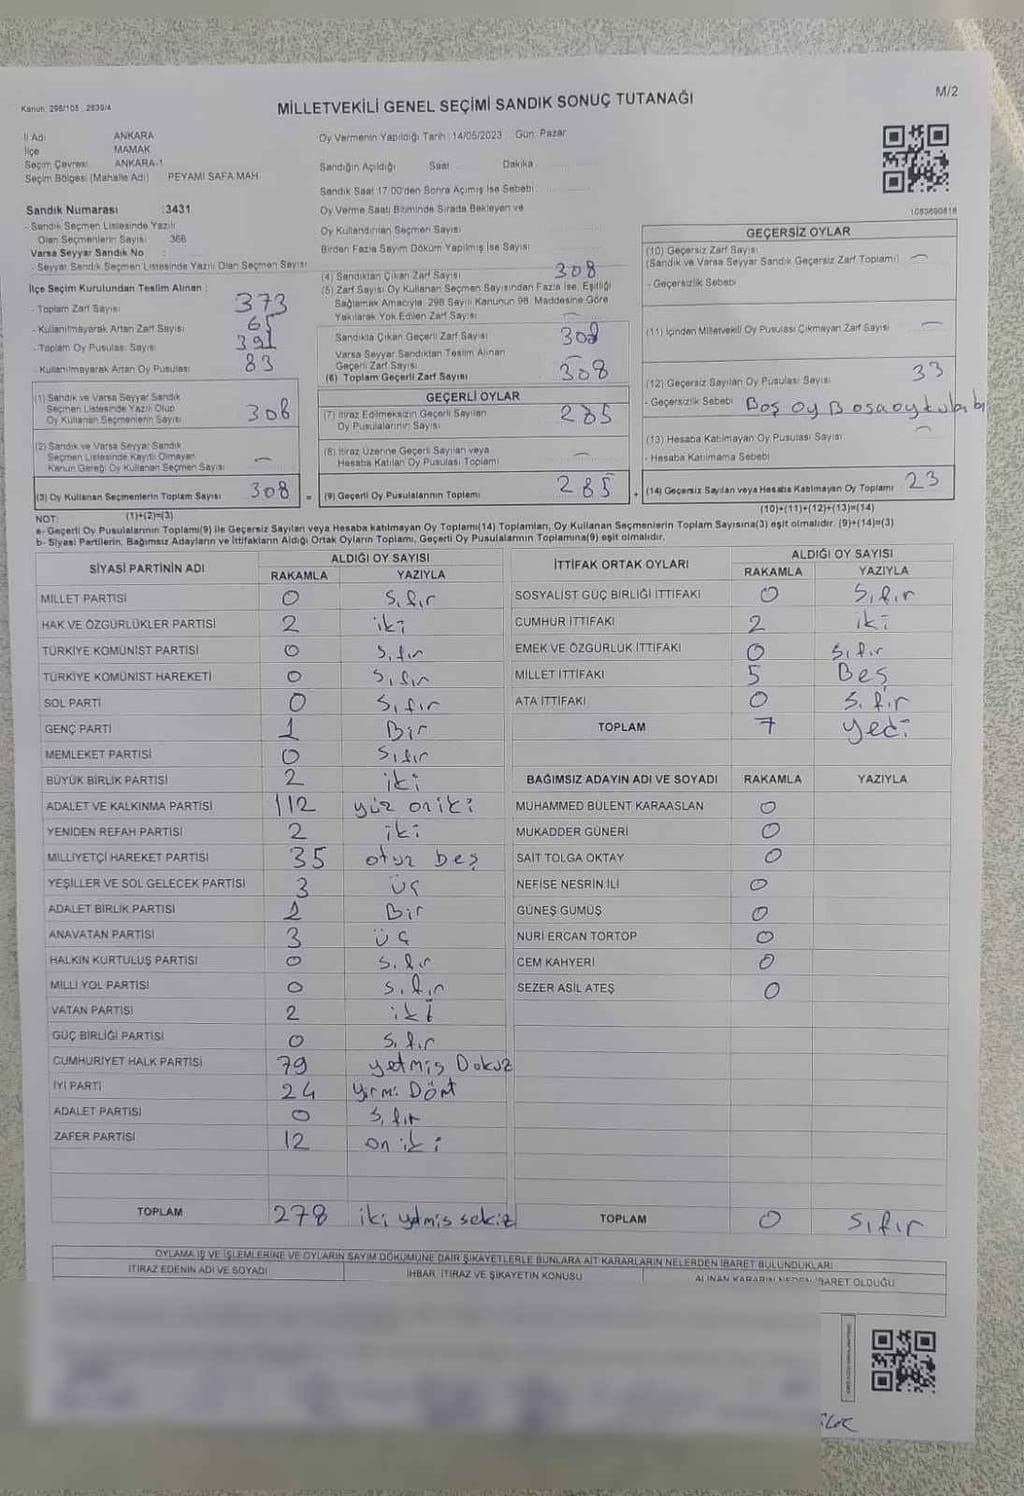 Kanun: 298/105 , 2839/4
MİLLETVEKİLİ GENEL SEÇİMİ SANDIK SONUÇ TUTANAĞI
M/2
İl Adı ANKARA
İlçe MAMAK
Seçim Çevresi ANKARA-1
Seçim Bölgesi (Mahalle Adı) PEYAMİ SAFA MAH
Sandık Numarası :3431
- Sandık Seçmen Listesinde Yazılı
Olan Seçmenlerin Sayısı 366
Varsa Seyyar Sandık No :
- Seyyar Sandık Seçmen Listesinde Yazılı Olan Seçmen Sayısı
İlçe Seçim Kurulundan Teslim Alınan :
- Toplam Zarf Sayısı 373
- Kullanılmayarak Artan Zarf Sayısı 65
- Toplam Oy Pusulası Sayısı 391
- Kullanılmayarak Artan Oy Pusulası 83
(1) Sandık ve Varsa Seyyar Sandık
Seçmen Listesinde Yazılı Olup
Oy Kullanan Seçmenlerin Sayısı 308
(2) Sandık ve Varsa Seyyar Sandık
Seçmen Listesinde Kayıtlı Olmayan
Kanun Gereği Oy Kullanan Seçmen Sayısı —
(3) Oy Kullanan Seçmenlerin Toplam Sayısı 308 =
(1)+(2)=(3)
Oy Vermenin Yapıldığı Tarih : 14/05/2023 Gün: Pazar
Sandığın Açıldığı Saat Dakika
Sandık Saat 17:00'den Sonra Açılmış İse Sebebi
Oy Verme Saati Bitiminde Sırada Bekleyen ve
Oy Kullandırılan Seçmen Sayısı
Birden Fazla Sayım Döküm Yapılmış İse Sayısı
(4) Sandıktan Çıkan Zarf Sayısı 308
(5) Zarf Sayısı Oy Kullanan Seçmen Sayısından Fazla İse, Eşitliği
Sağlamak Amacıyla 298 Sayılı Kanunun 98. Maddesine Göre
Yakılarak Yok Edilen Zarf Sayısı —
Sandıkta Çıkan Geçerli Zarf Sayısı 308
Varsa Seyyar Sandıktan Teslim Alınan
Geçerli Zarf Sayısı —
(6) Toplam Geçerli Zarf Sayısı 308
GEÇERLİ OYLAR
(7) İtiraz Edilmeksizin Geçerli Sayılan
Oy Pusulalarının Sayısı 285
(8) İtiraz Üzerine Geçerli Sayılan veya
Hesaba Katılan Oy Pusulası Toplamı —
(9) Geçerli Oy Pusulalarının Toplamı 285 +
1083890818
GEÇERSİZ OYLAR
(10) Geçersiz Zarf Sayısı
(Sandık ve Varsa Seyyar Sandık Geçersiz Zarf Toplamı) —
- Geçersizlik Sebebi
(11) İçinden Milletvekili Oy Pusulası Çıkmayan Zarf Sayısı —
(12) Geçersiz Sayılan Oy Pusulası Sayısı 33
- Geçersizlik Sebebi Boş oy Boşa oy
(13) Hesaba Katılmayan Oy Pusulası Sayısı —
- Hesaba Katılmama Sebebi
(14) Geçersiz Sayılan veya Hesaba Katılmayan Oy Toplamı 23
(10)+(11)+(12)+(13)=(14)
NOT:
a- Geçerli Oy Pusulalarının Toplamı(9) ile Geçersiz Sayılan veya Hesaba katılmayan Oy Toplamı(14) Toplamları, Oy Kullanan Seçmenlerin Toplam Sayısına(3) eşit olmalıdır. (9)+(14)=(3)
b- Siyasi Partilerin, Bağımsız Adayların ve İttifakların Aldığı Ortak Oyların Toplamı, Geçerli Oy Pusulalarının Toplamına(9) eşit olmalıdır.
SİYASİ PARTİNİN ADI ALDIĞI OY SAYISI
RAKAMLA YAZIYLA
MİLLET PARTİSİ 0 Sıfır
HAK VE ÖZGÜRLÜKLER PARTİSİ 2 iki
TÜRKİYE KOMÜNİST PARTİSİ 0 Sıfır
TÜRKİYE KOMÜNİST HAREKETİ 0 Sıfır
SOL PARTİ 0 Sıfır
GENÇ PARTİ 1 Bir
MEMLEKET PARTİSİ 0 Sıfır
BÜYÜK BİRLİK PARTİSİ 2 iki
ADALET VE KALKINMA PARTİSİ 112 yüz oniki
YENİDEN REFAH PARTİSİ 2 iki
MİLLİYETÇİ HAREKET PARTİSİ 35 otuz beş
YEŞİLLER VE SOL GELECEK PARTİSİ 3 üç
ADALET BİRLİK PARTİSİ 1 Bir
ANAVATAN PARTİSİ 3 üç
HALKIN KURTULUŞ PARTİSİ 0 Sıfır
MİLLİ YOL PARTİSİ 0 Sıfır
VATAN PARTİSİ 2 iki
GÜÇ BİRLİĞİ PARTİSİ 0 Sıfır
CUMHURİYET HALK PARTİSİ 79 yetmiş Dokuz
İYİ PARTİ 24 yirmi Dört
ADALET PARTİSİ 0 Sıfır
ZAFER PARTİSİ 12 on iki
TOPLAM 278 iki yetmiş sekiz
İTTİFAK ORTAK OYLARI ALDIĞI OY SAYISI
RAKAMLA YAZIYLA
SOSYALİST GÜÇ BİRLİĞİ İTTİFAKI 0 Sıfır
CUMHUR İTTİFAKI 2 iki
EMEK VE ÖZGÜRLÜK İTTİFAKI 0 Sıfır
MİLLET İTTİFAKI 5 Beş
ATA İTTİFAKI 0 Sıfır
TOPLAM 7 yedi
BAĞIMSIZ ADAYIN ADI VE SOYADI RAKAMLA YAZIYLA
MUHAMMED BÜLENT KARAASLAN 0
MUKADDER GÜNERİ 0
SAİT TOLGA OKTAY 0
NEFİSE NESRİN İLİ 0
GÜNEŞ GÜMÜŞ 0
NURİ ERCAN TORTOP 0
CEM KAHYERİ 0
SEZER ASİL ATEŞ 0
TOPLAM 0 Sıfır
OYLAMA İŞ VE İŞLEMLERİNE VE OYLARIN SAYIM DÖKÜMÜNE DAİR ŞİKAYETLERLE BUNLARA AİT KARARLARIN NELERDEN İBARET BULUNDUKLARI
İTİRAZ EDENİN ADI VE SOYADI İHBAR, İTİRAZ VE ŞİKAYETİN KONUSU ALINAN KARARIN NEDEN İBARET OLDUĞU